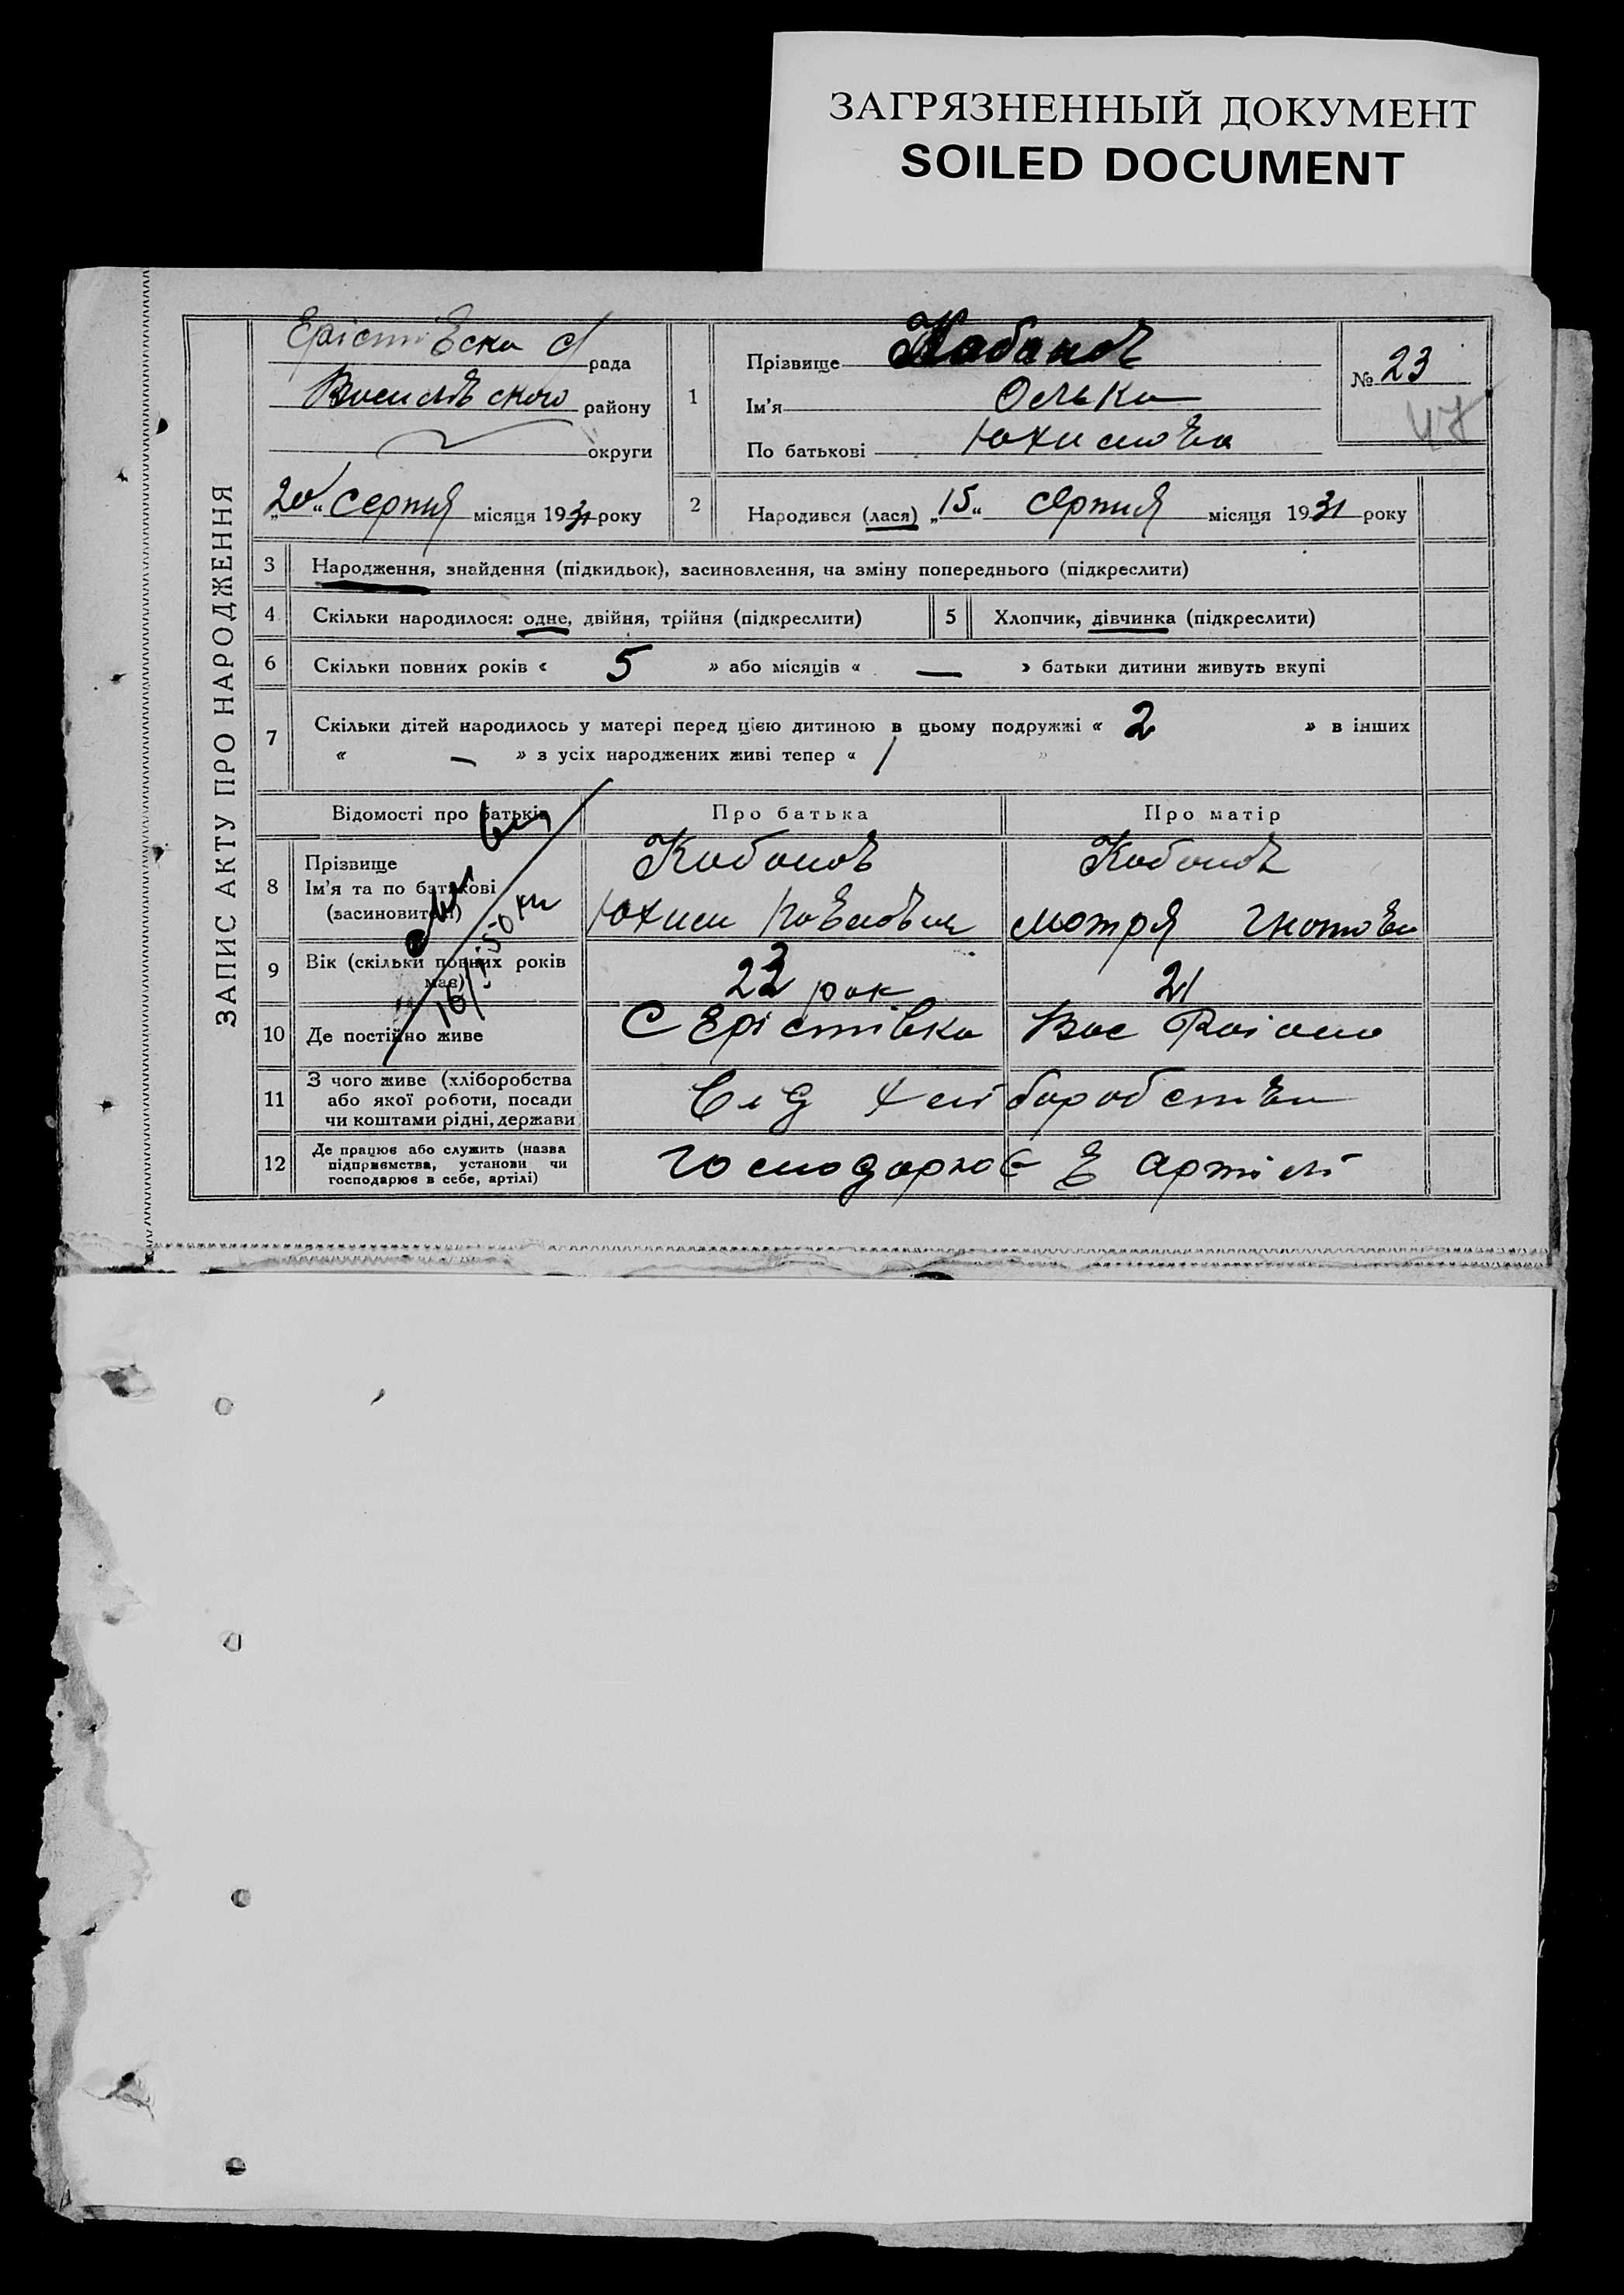 ЗАГРЯЗНЕННЫЙ ДОКУМЕНТ
SOILED DOCUMENT
ЗАПИС АКТУ ПРО НАРОДЖЕННЯ
Ерістівска с/рада
Василівского району
округи
„20“ Серпня місяця 1931 року
1
Прізвище Кабанов
Ім'я Олька
По батькові Юхимова
№ 23
47
2 Народився (лася) „15“ Серпня місяця 1931 року
3 Народження, знайдення (підкидьок), засиновлення, на зміну попереднього (підкреслити)
4 Скільки народилося: одне, двійня, трійня (підкреслити) 5 Хлопчик, дівчинка (підкреслити)
6 Скільки повних років « 5 » або місяців « — » батьки дитини живуть вкупі
7 Скільки дітей народилось у матері перед цією дитиною в цьому подружжі « 2 » в інших
« — » з усіх народжених живі тепер « 1 »
Відомості про батьків Про батька Про матір
8 Прізвище Кабанов Кабанов
Ім'я та по батькові
(засновителі) Юхим Мотря Гнатова
9 Вік (скільки повних років
має) 22 рок 21
10 Де постійно живе С Ерістівка Вас Раіону
11 З чого живе (хліборобства
або якої роботи, посади
чи коштами рідні, держави Від хліборобства
12 Де працює або служить (назва
підприємства, установи чи
господарює в себе, артілі) Господарює в артілі